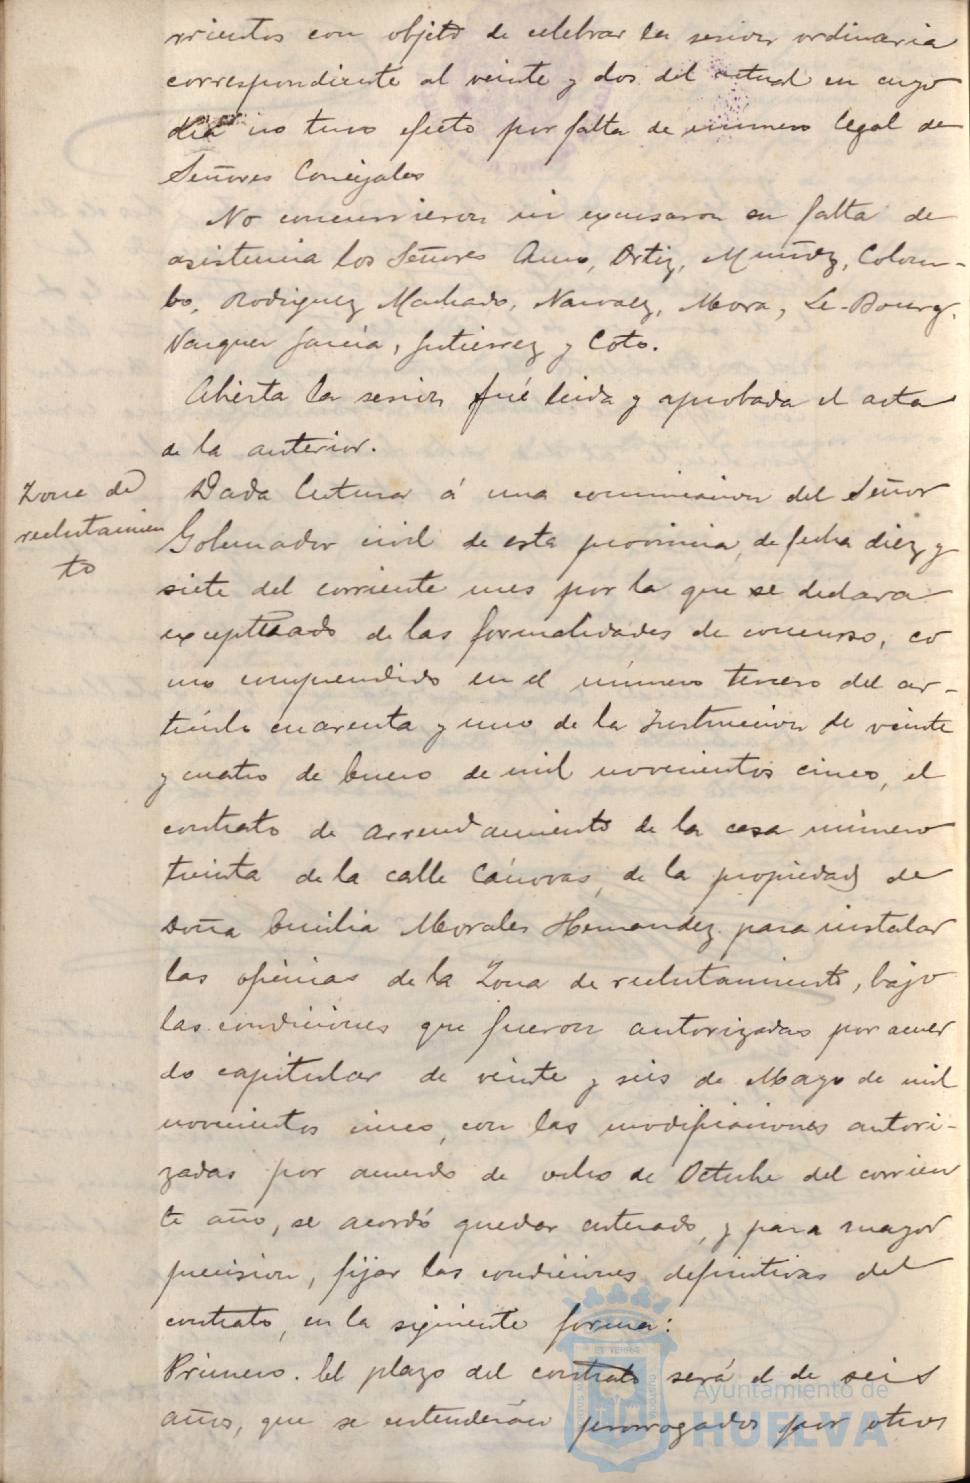 rrientos con objeto de celebrar la sesion ordinaria
correspondiente al veinte y dos del actual en cuyo
dia no tuvo efecto por falta de número legal de
Señores Concejales
No concurrieron ni excusaron su falta de
asistencia los Señores Amo, Ortiz, Muñoz, Colom-
bo, Rodriguez Machado, Narvaez, Mora, Le-Bourg,
Vazquez García, Gutierrez y Coto.
Abierta la sesion fué leida y aprobada el acta
de la anterior.
Zona de
reclutamien
to
Dada lectura á una comunicacion del Señor
Gobernador civil de esta provincia, de fecha diez y
siete del corriente mes por la que se declara
exceptuado de las formalidades de concurso, co
mo comprendido en el número tercero del ar-
tículo cuarenta y uno de la Instruccion de veinte
y cuatro de Enero de mil novecientos cinco, el
contrato de arrendamiento de la casa número
treinta de la calle Cánovas, de la propiedad de
Doña Emilia Morales Hernandez para instalar
las oficinas de la Zona de reclutamiento, bajo
las condiciones que fueron autorizadas por acuer
do capitular de veinte y seis de Mayo de mil
novecientos cinco, con las modificaciones autori-
zadas por acuerdo de ocho de Octubre del corrien
te año, se acordó quedar enterado, y para mayor
precision, fijar las condiciones definitivas del
contrato, en la siguiente forma:
Primero. El plazo del contrato será el de seis
años, que se entenderán prorrogados por otros
Ayuntamiento de
HUELVA